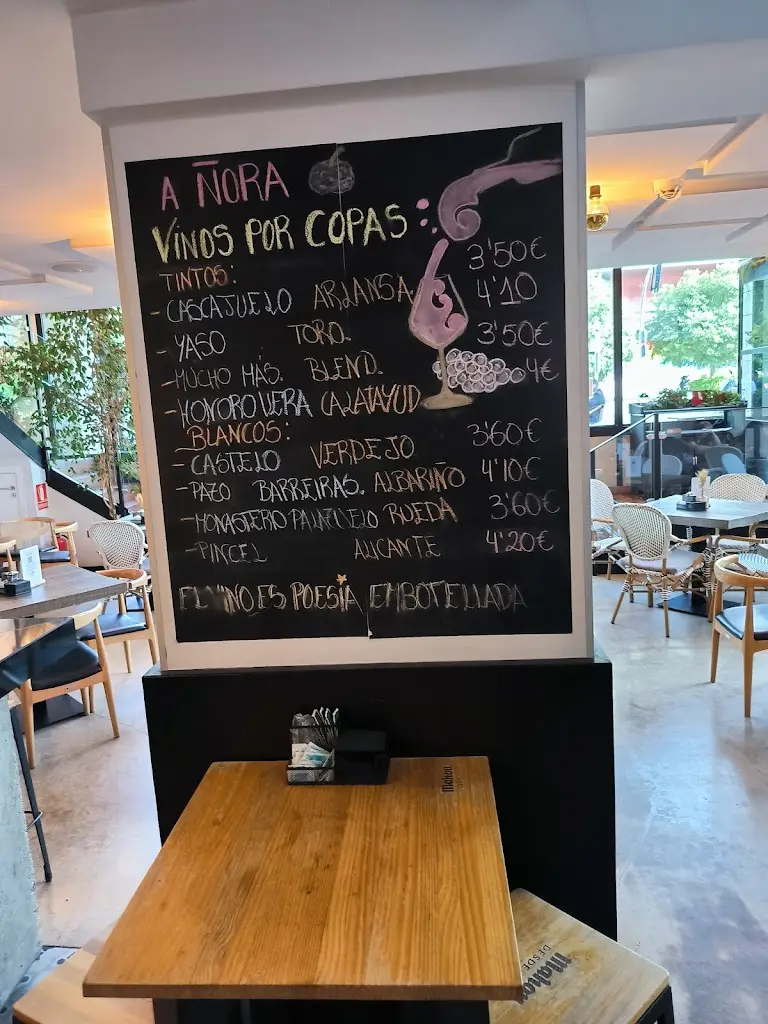 A ÑORA
VINOS POR COPAS:
TINTOS:
- CASCAJUELO ARLANSA 3'50€
- YASO TORO. 4'10
- MUCHO MÁS. BLEND. 3'50€
- HONORO VERA CALATAYUD 4€
BLANCOS:
- CASTELO VERDEJO 3'60€
- PAZO BARREIRAS. ALBARIÑO 4'10€
- MONASTERO PALAZUELO RUEDA 3'60€
- PINCEL ALICANTE 4'20€
EL VINO ES POESIA EMBOTELLADA
Mahou
Mahou
DESDE